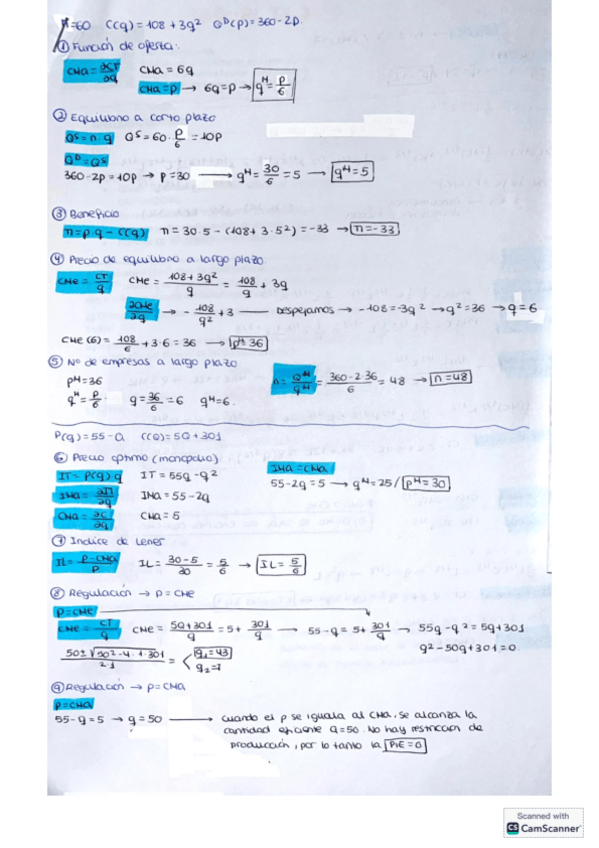 n=60 C(q) = 108 + 3q² Q^D(p) = 360 - 2p.
① Función de oferta:
CMa = ∂CT/∂q CMa = 6q
CMa = p → 6q = p → q^M = p/6
② Equilibrio a corto plazo
Q^S = n·q Q^S = 60·p/6 = 10p
Q^D = Q^S
360 - 2p = 10p → p = 30 → q^M = 30/6 = 5 → q^M = 5
③ Beneficio
π = p·q - C(q) π = 30·5 - (108 + 3·5²) = -33 → π = -33
④ Precio de equilibrio a largo plazo
CMe = CT/q CMe = 108 + 3q²/q = 108/q + 3q
∂CMe/∂q → -108/q² + 3 — Despejamos → -108 = -3q² → q² = 36 → q = 6
CMe (6) = 108/6 + 3·6 = 36 → p^M = 36
⑤ Nº de empresas a largo plazo
p^M = 36 n = Q^M/q^M = 360 - 2·36/6 = 48 → n = 48
q^M = p/6 q = 36/6 = 6 q^M = 6.
P(q) = 55 - Q C(Q) = 5Q + 301
⑥ Precio optimo (monopolio) IMa = CMa
IT = P(q)·q IT = 55q - q² 55 - 2q = 5 → q^M = 25 / p^M = 30
IMa = ∂IT/∂q IMa = 55 - 2q
CMa = ∂C/∂q CMa = 5
⑦ Indice de Lener
IL = p - CMa/p IL = 30 - 5/30 = 5/6 → IL = 5/6
⑧ Regulación → p = CMe
p = CMe
CMe = CT/q CMe = 5q + 301/q = 5 + 301/q → 55 - q = 5 + 301/q → 55q - q² = 5q + 301
q² - 50q + 301 = 0.
50 ± √50² - 4·1·301/2·1 = < q₁ = 43
q₂ = 7
⑨ Regulación → p = CMa
p = CMa
55 - q = 5 → q = 50 → cuando el p se iguala al CMa, se alcanza la
cantidad eficiente q = 50. No hay restricción de
producción, por lo tanto la PIE = 0
Scanned with
CS CamScanner